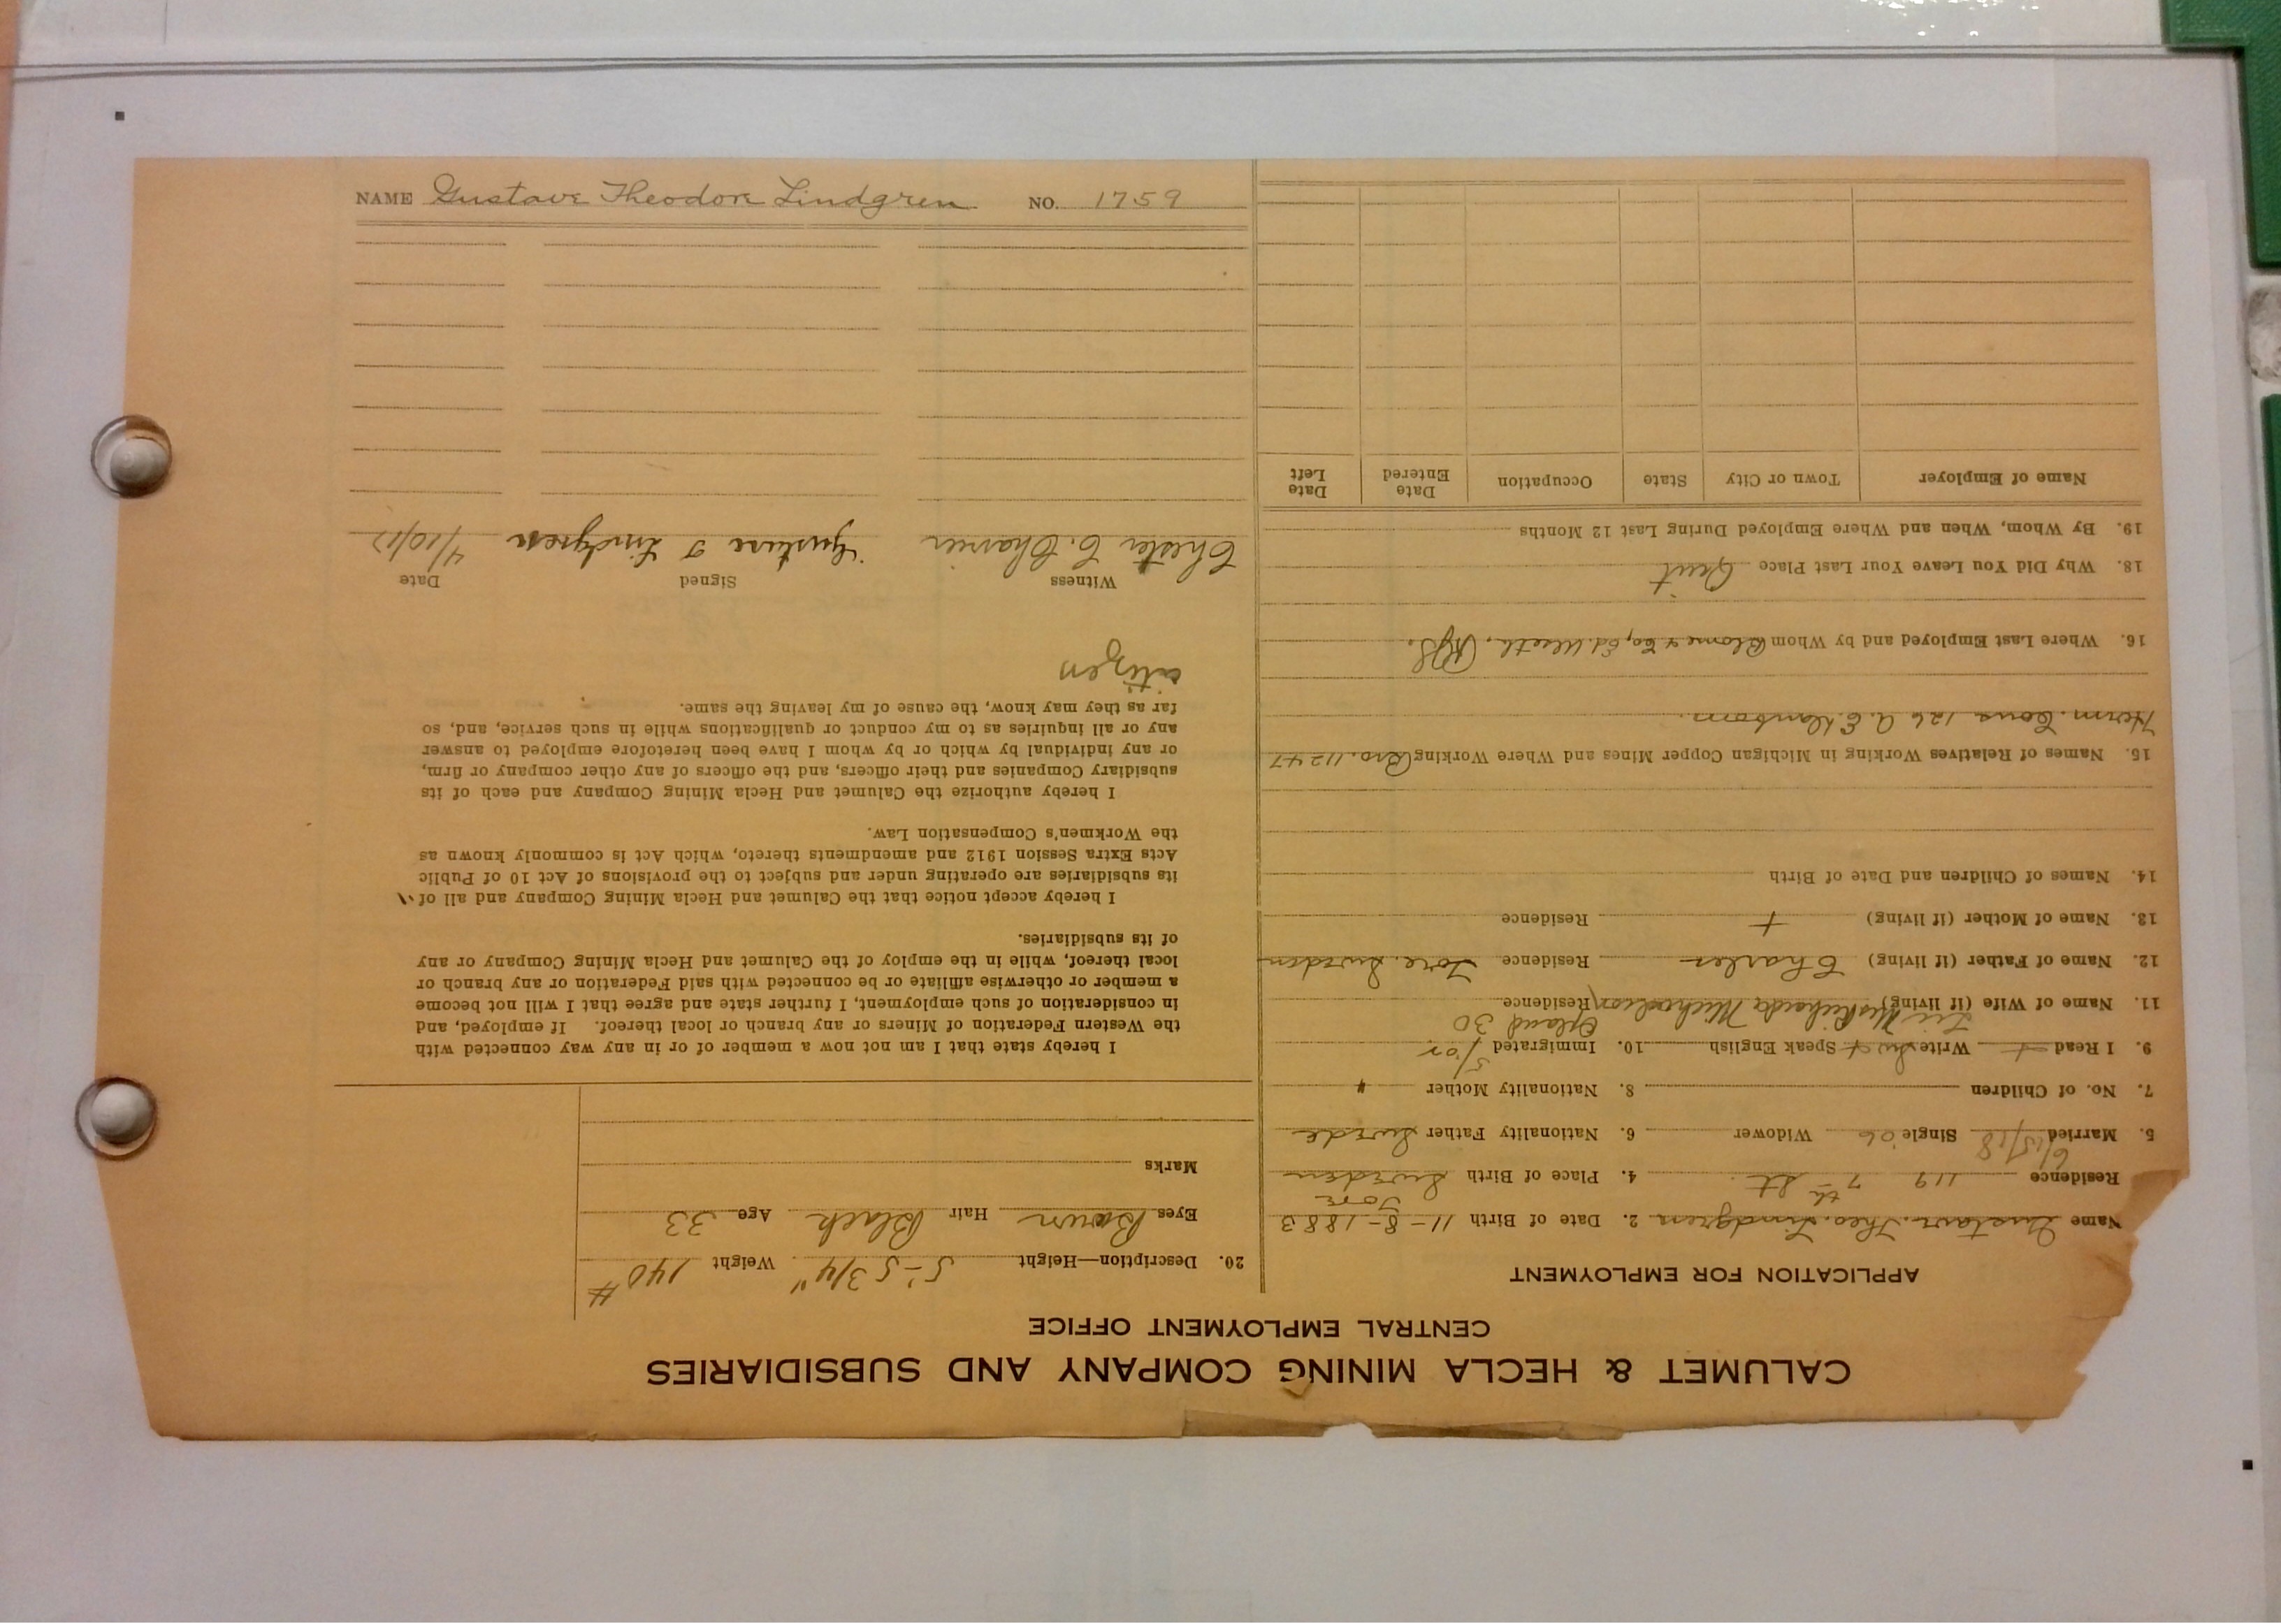 NAME Gustave Theodore Lindgren NO. 1759
CALUMET & HECLA MINING COMPANY AND SUBSIDIARIES
CENTRAL EMPLOYMENT OFFICE
APPLICATION FOR EMPLOYMENT
Name Gustave Theo. Lindgren 2. Date of Birth 11-8-1883
Residence 119 7th St 4. Place of Birth Tore Sweden
6/15/18
5. Married Single Widower 6. Nationality Father Swede
7. No. of Children 8. Nationality Mother "
9. I Read Write Speak English 10. Immigrated 5/02
11. Name of Wife (if living) Residence
12. Name of Father (if living) Charles Residence Tore, Sweden
13. Name of Mother (if living) + Residence
14. Names of Children and Date of Birth
15. Names of Relatives Working in Michigan Copper Mines and Where Working Bro. 11247
16. Where Last Employed and by Whom
18. Why Did You Leave Your Last Place Quit
19. By Whom, When and Where Employed During Last 12 Months
Name of Employer Town or City State Occupation Date Entered Date Left
20. Description—Height 5'-5 3/4" Weight 140#
Eyes Brown Hair Black Age 33
Marks
I hereby state that I am not now a member of or in any way connected with
the Western Federation of Miners or any branch or local thereof. If employed, and
in consideration of such employment, I further state and agree that I will not become
a member or otherwise affiliate or be connected with said Federation or any branch or
local thereof, while in the employ of the Calumet and Hecla Mining Company or any
of its subsidiaries.
I hereby accept notice that the Calumet and Hecla Mining Company and all of
its subsidiaries are operating under and subject to the provisions of Act 10 of Public
Acts Extra Session 1912 and amendments thereto, which Act is commonly known as
the Workmen's Compensation Law.
I hereby authorize the Calumet and Hecla Mining Company and each of its
subsidiary Companies and their officers, and the officers of any other company or firm,
or any individual by which or by whom I have been heretofore employed to answer
any or all inquiries as to my conduct or qualifications while in such service, and, so
far as they may know, the cause of my leaving the same.
citizen
Witness Signed Date
Chester Gustave T Lindgren 4/10/17